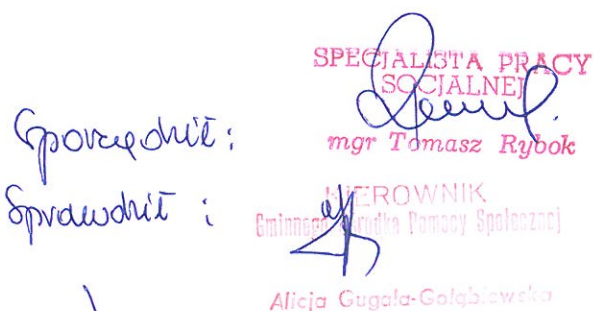 SPECJALISTA PRACY
SOCJALNEJ
mgr Tomasz Rybok
Sporządził:
Sprawdził:
KIEROWNIK
Gminnego Ośrodka Pomocy Społecznej
Alicja Gugała-Gołąbiewska